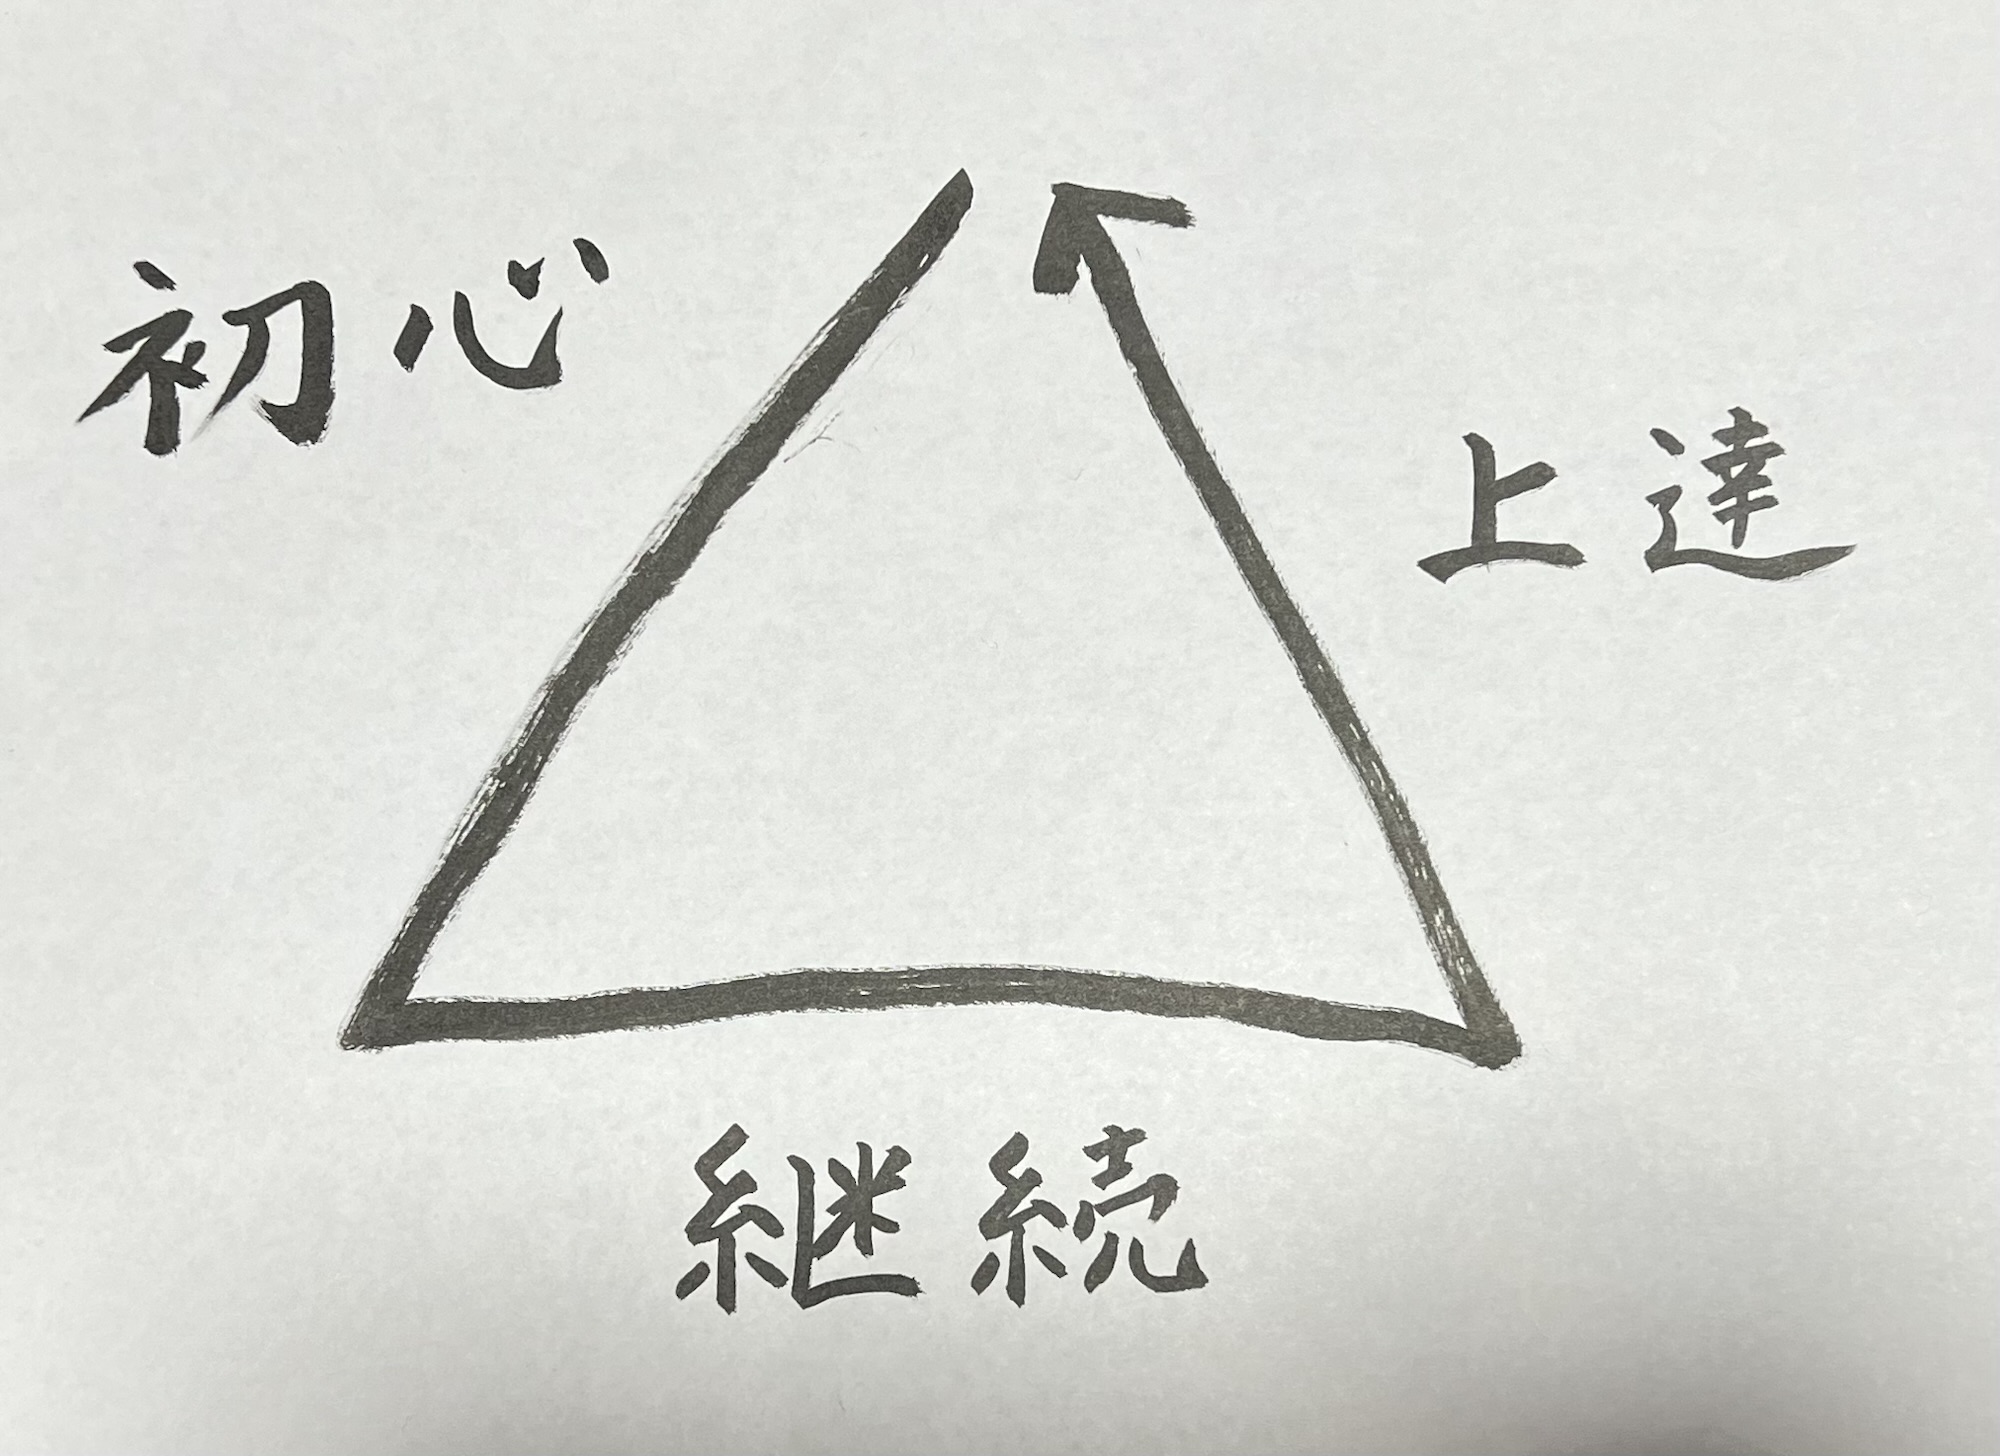 初心
上達
継続